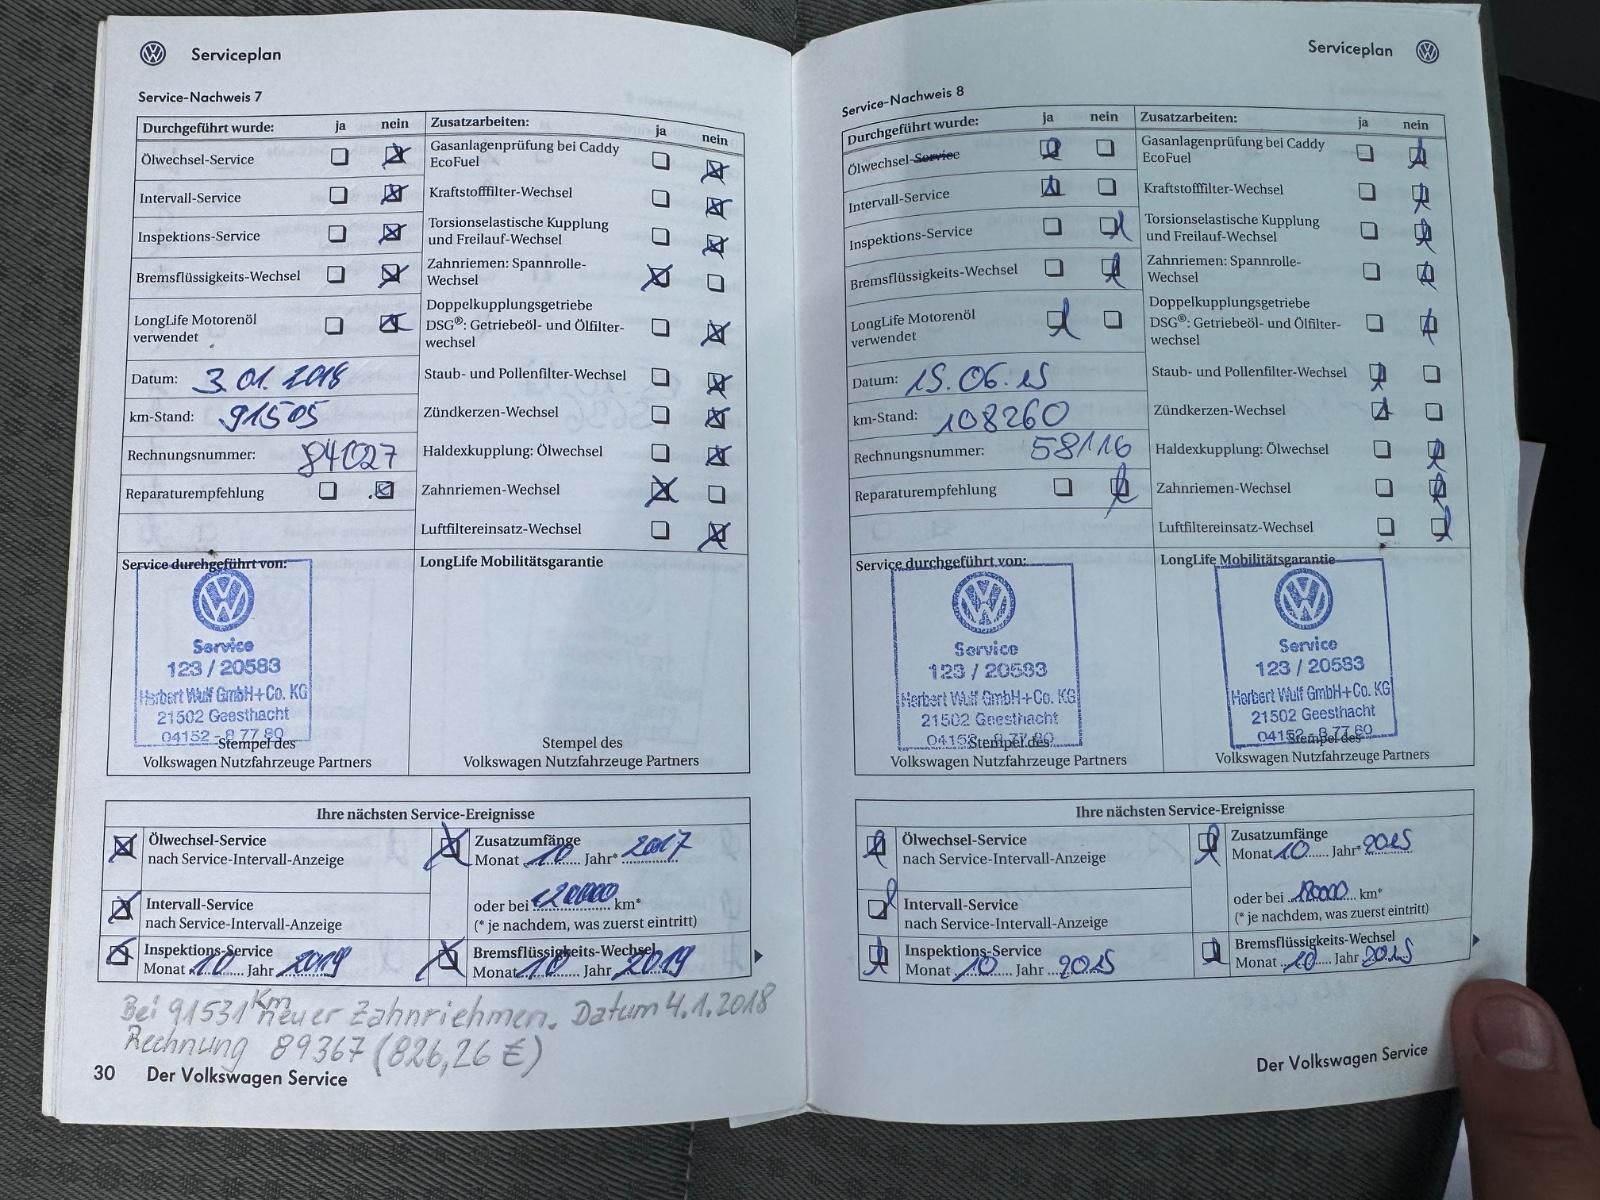 Serviceplan
Service-Nachweis 7
Durchgeführt wurde: ja nein
Ölwechsel-Service
Intervall-Service
Inspektions-Service
Bremsflüssigkeits-Wechsel
LongLife Motorenöl
verwendet
Datum: 3.01.2018
km-Stand: 91505
Rechnungsnummer: 84027
Reparaturempfehlung
Zusatzarbeiten: ja nein
Gasanlagenprüfung bei Caddy
EcoFuel
Kraftstofffilter-Wechsel
Torsionselastische Kupplung
und Freilauf-Wechsel
Zahnriemen: Spannrolle-
Wechsel
Doppelkupplungsgetriebe
DSG®: Getriebeöl- und Ölfilter-
wechsel
Staub- und Pollenfilter-Wechsel
Zündkerzen-Wechsel
Haldexkupplung: Ölwechsel
Zahnriemen-Wechsel
Luftfiltereinsatz-Wechsel
Service durchgeführt von:
Service
123 / 20583
Herbert Wulf GmbH+Co. KG
21502 Geesthacht
04152 - 8 77 80
Stempel des
Volkswagen Nutzfahrzeuge Partners
LongLife Mobilitätsgarantie
Stempel des
Volkswagen Nutzfahrzeuge Partners
Ihre nächsten Service-Ereignisse
Ölwechsel-Service
nach Service-Intervall-Anzeige
Intervall-Service
nach Service-Intervall-Anzeige
Inspektions-Service
Monat 10 Jahr 2019
Zusatzumfänge
Monat 10 Jahr* 2017
oder bei 120000 km*
(* je nachdem, was zuerst eintritt)
Bremsflüssigkeits-Wechsel
Monat 10 Jahr 2019
Bei 91531 Km neuer Zahnriehmen. Datum 4.1.2018
Rechnung 89367 (826,26 €)
30 Der Volkswagen Service
Serviceplan
Service-Nachweis 8
Durchgeführt wurde: ja nein
Ölwechsel-Service
Intervall-Service
Inspektions-Service
Bremsflüssigkeits-Wechsel
LongLife Motorenöl
verwendet
Datum: 15.06.15
km-Stand: 108260
Rechnungsnummer: 58116
Reparaturempfehlung
Zusatzarbeiten: ja nein
Gasanlagenprüfung bei Caddy
EcoFuel
Kraftstofffilter-Wechsel
Torsionselastische Kupplung
und Freilauf-Wechsel
Zahnriemen: Spannrolle-
Wechsel
Doppelkupplungsgetriebe
DSG®: Getriebeöl- und Ölfilter-
wechsel
Staub- und Pollenfilter-Wechsel
Zündkerzen-Wechsel
Haldexkupplung: Ölwechsel
Zahnriemen-Wechsel
Luftfiltereinsatz-Wechsel
Service durchgeführt von:
Service
123 / 20583
Herbert Wulf GmbH+Co. KG
21502 Geesthacht
04152 - 8 77 80
Stempel des
Volkswagen Nutzfahrzeuge Partners
LongLife Mobilitätsgarantie
Service
123 / 20583
Herbert Wulf GmbH+Co. KG
21502 Geesthacht
04152 - 8 77 80
Stempel des
Volkswagen Nutzfahrzeuge Partners
Ihre nächsten Service-Ereignisse
Ölwechsel-Service
nach Service-Intervall-Anzeige
Intervall-Service
nach Service-Intervall-Anzeige
Inspektions-Service
Monat 10 Jahr 2015
Zusatzumfänge
Monat 10 Jahr* 2015
oder bei km*
(* je nachdem, was zuerst eintritt)
Bremsflüssigkeits-Wechsel
Monat 10 Jahr 2015
Der Volkswagen Service